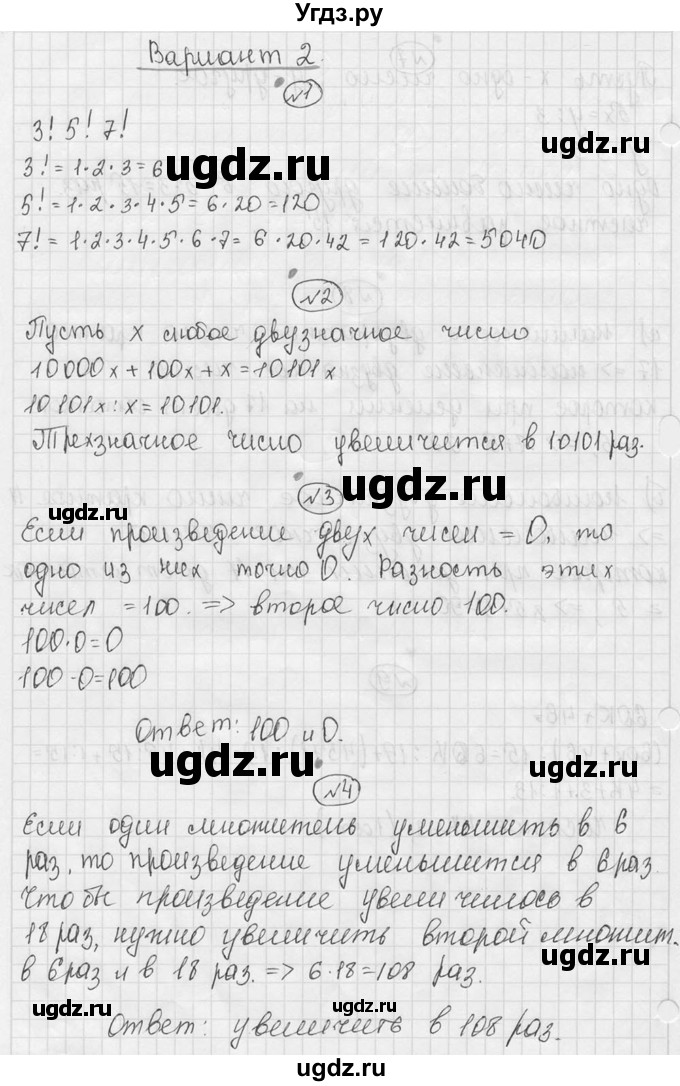 Угдз.ру
Вариант 2.
№1
3! 5! 7!
3! = 1·2·3=6
ugdz.ru
ugdz.ru
5! = 1·2·3·4·5 = 6·20=120
7! = 1·2·3·4·5·6·7= 6·20·42 = 120·42=5040
№2
Пусть x любое двузначное число
10000x+100x+x=10101x
10101x:x=10101.
ugdz.ru
Трехзначное число увеличится в 10101 раз.
№3
ugdz.ru
Если произведение двух чисел = 0, то
одно из них точно 0. Разность этих
ugdz.ru
чисел =100. => второе число 100.
100·0=0
100-0=100
Ответ: 100 и 0.
ugdz.ru
№4
Если один множитель уменьшить в 6
раз, то произведение уменьшится в 6 раз.
ugdz.ru
Чтобы произведение увеличилось в
18 раз, нужно увеличить второй множит.
в 6 раз и в 18 раз. => 6·18=108 раз.
ugdz.ru
ugdz.ru
Ответ: увеличить в 108 раз.
ugdz.ru